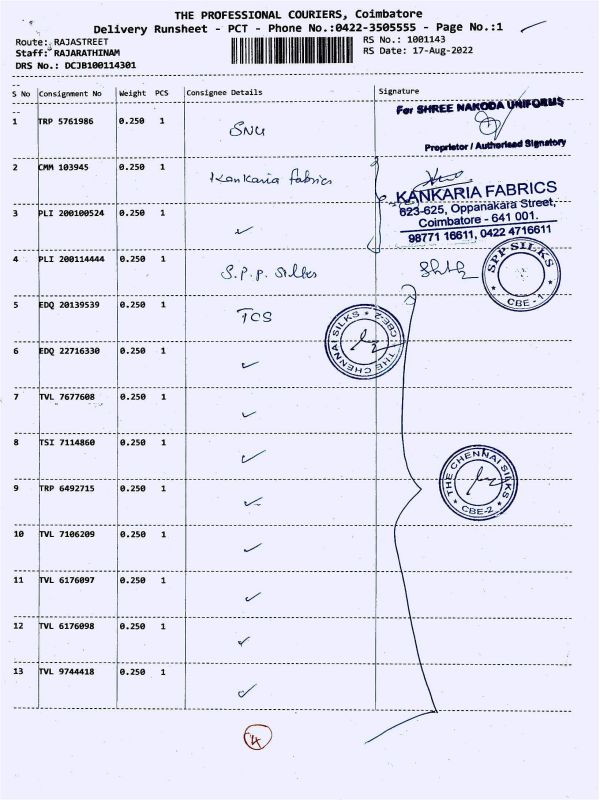 THE PROFESSIONAL COURIERS, Coimbatore
Delivery Runsheet - PCT - Phone No.:0422-3505555 - Page No.:1
Route: RAJASTREET
RS No.: 1001143
Staff: RAJARATHINAM
RS Date: 17-Aug-2022
DRS No.: DCJB100114301
S No Consignment No Weight PCS Consignee Details Signature
For SHREE NAKODA UNIFORMS
1 TRP 5761986 0.250 1 SNU
Proprietor / Authorised Signatory
2 CMM 103945 0.250 1 Kankaria fabrics
KANKARIA FABRICS
623-625, Oppanakara Street,
Coimbatore - 641 001.
98771 16611, 0422 4716611
3 PLI 200100524 0.250 1 ✓
4 PLI 200114444 0.250 1 S.P.P. Silks
SPP SILKS
CBE - 1
5 EDQ 20139539 0.250 1 TCS
THE CHENNAI SILKS
CBE-2
6 EDQ 22716330 0.250 1 ✓
7 TVL 7677608 0.250 1 ✓
8 TSI 7114860 0.250 1 ✓
THE CHENNAI SILKS
CBE-2
9 TRP 6492715 0.250 1 ✓
10 TVL 7106209 0.250 1 ✓
11 TVL 6176097 0.250 1 ✓
12 TVL 6176098 0.250 1 ✓
13 TVL 9744418 0.250 1 ✓
4